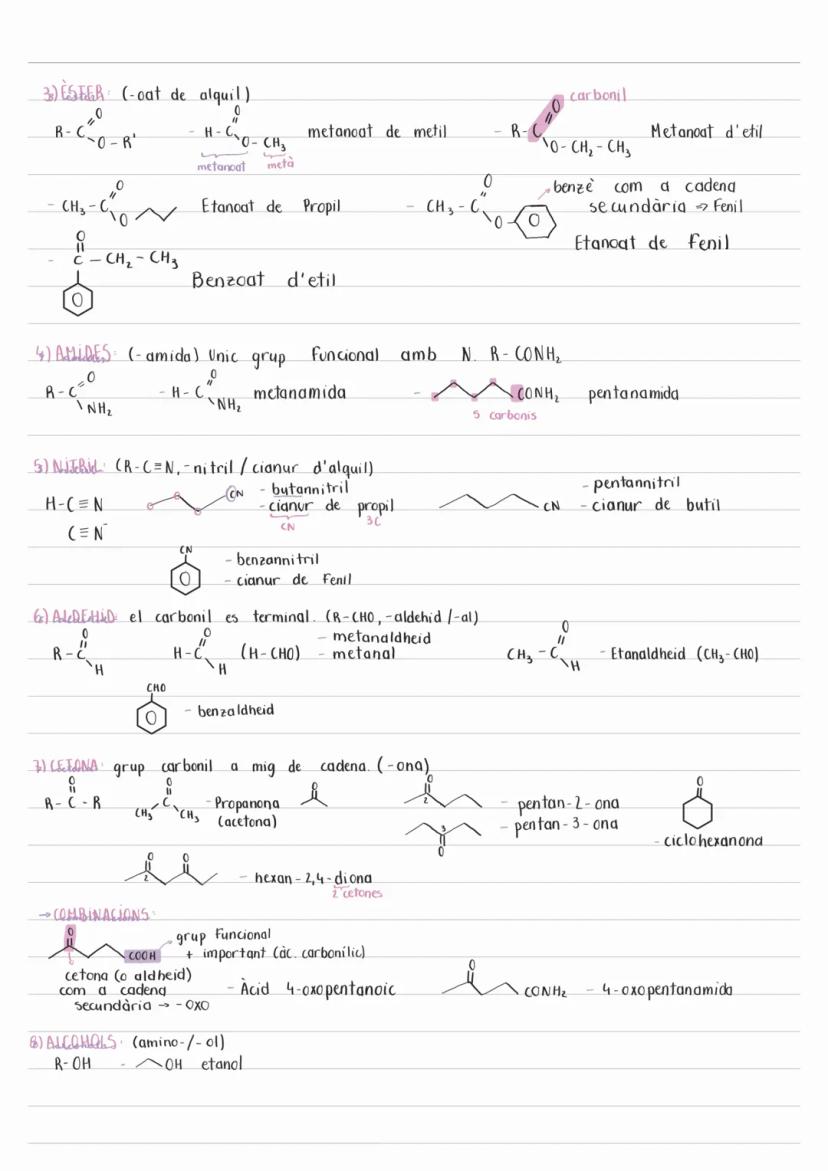 3) ÈSTER: (-oat de alquil)
carbonil
R-C=O O-R' - H-C=O O-CH₃ metanoat de metil - R-C=O O-CH₂-CH₃ Metanoat d'etil
metanoat metà
- CH₃-C=O O Etanoat de Propil - CH₃-C=O O benzè com a cadena
secundària → Fenil
Etanoat de Fenil
- O=C-CH₂-CH₃
Benzoat d'etil
4) AMIDES: (-amida) Unic grup Funcional amb N. R-CONH₂
R-C=O NH₂ - H-C=O NH₂ metanamida - CONH₂ pentanamida
5 carbonis
5) NITRIL: (R-C≡N, -nitril / cianur d'alquil)
H-C≡N CN - butannitril CN - pentannitril
- cianur de propil - cianur de butil
CN 3C
C≡N⁻
CN - benzannitril
- cianur de Fenil
6) ALDEHID: el carbonil es terminal. (R-CHO, -aldehid /-al)
R-C=O H H-C=O H (H-CHO) - metanaldheid
- metanal CH₃-C=O H - Etanaldheid (CH₃-CHO)
CHO
- benzaldheid
7) CETONA: grup carbonil a mig de cadena. (-ona)
R-C-R O CH₃ C CH₃ O - Propanona O 2 - pentan-2-ona O
(acetona) 3 O - pentan-3-ona
- ciclohexanona
O O 2 - hexan-2,4-diona
2 cetones
→ COMBINACIONS:
O COOH grup Funcional
+ important (àc. carbonílic)
cetona (o aldheid)
com a cadena - Àcid 4-oxopentanoic O CONH₂ - 4-oxopentanamida
secundària → -OXO
8) ALCOHOLS: (amino-/-ol)
R-OH - OH etanol